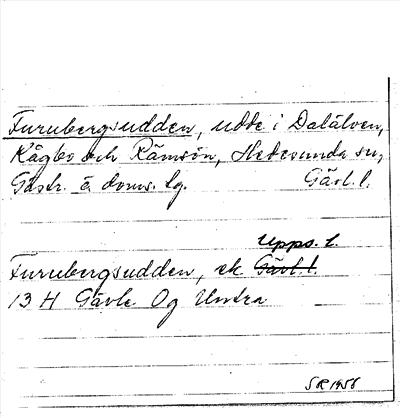 Furubergsudden, udde i Dalälven,
Kågbo och Rämsön, Hedesunda sn,
Gästr. ö. doms. tg. Gävl. l.
Upps. l.
Furubergsudden, ek Gävl. l.
13 H Gävle Og Untra
SR 1956